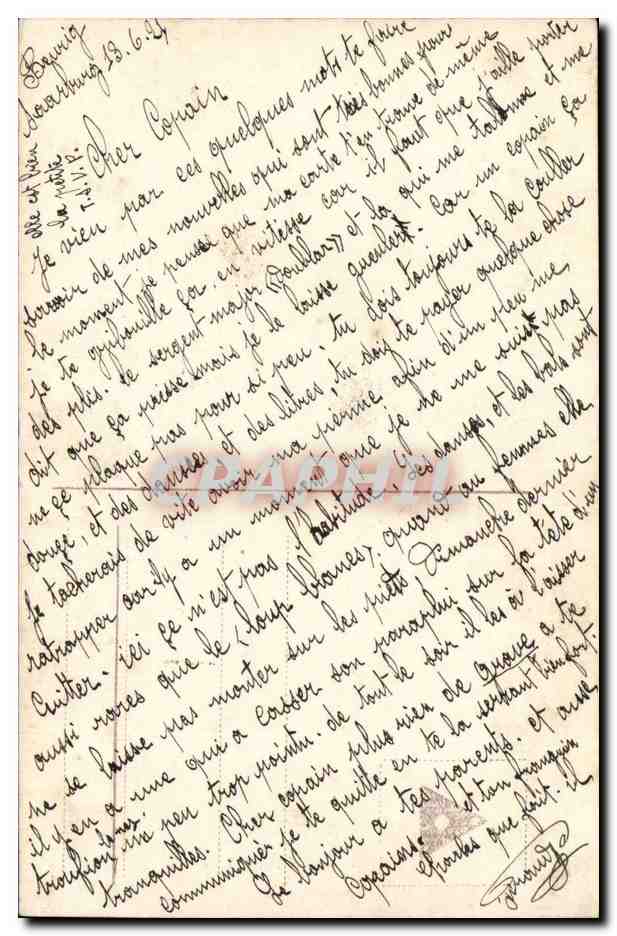 Beurig
Saarburg 13.6.21
Cher Copain
Je vien par ces quelques mots te faire
savoir de mes nouvelles qui sont très bonnes pour
le moment je pense que ma carte t'en trouve de même
je te ça en vitesse car il faut que j'aille porter
des plis. Le sergent major et la qui me et me
dit que ça presse mais je le laisse gueuler. Car un copain ça
ne se plaque pas pour si peu, tu dois toujours te la couller
douce, et des et des litres, tu dois te payer quelque chose
Je tacherais de vite avoir ma perme afin d'un peu me
ratrapper car il y a un moment que je ne me suis pas
Cuitter. ici ce n'est pas l'habitude. Les danses, et les bals sont
aussi rares que le (loup blanc), quand au femmes elle
ne se laisse pas monter sur les pieds Dimanche dernier
il y en a une qui a casser son paraplui sur la tête d'un
troufion un peu trop pointu. de tout le soir il les à laisser
tranquilles. Cher copain plus rien de grave a te
communiquer je te quitte en te la serrant bien fort.
Le bonjour a tes parents. et aux
Copains. et ton frangin
Charles que fait-il
elle est bien
la petite
T.S.V.P.